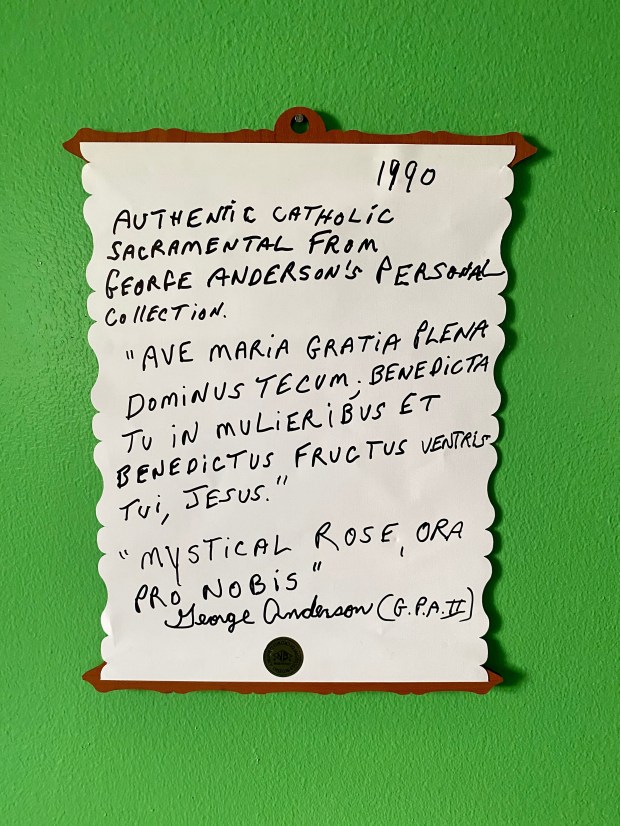 1990
AUTHENTIC CATHOLIC
SACRAMENTAL FROM
GEORGE ANDERSON'S PERSONAL
COLLECTION.
"AVE MARIA GRATIA PLENA
DOMINUS TECUM; BENEDICTA
TU IN MULIERIBUS ET
BENEDICTUS FRUCTUS VENTRIS
TUI, JESUS."
"MYSTICAL ROSE, ORA
PRO NOBIS"
George Anderson (G.P.A.II)